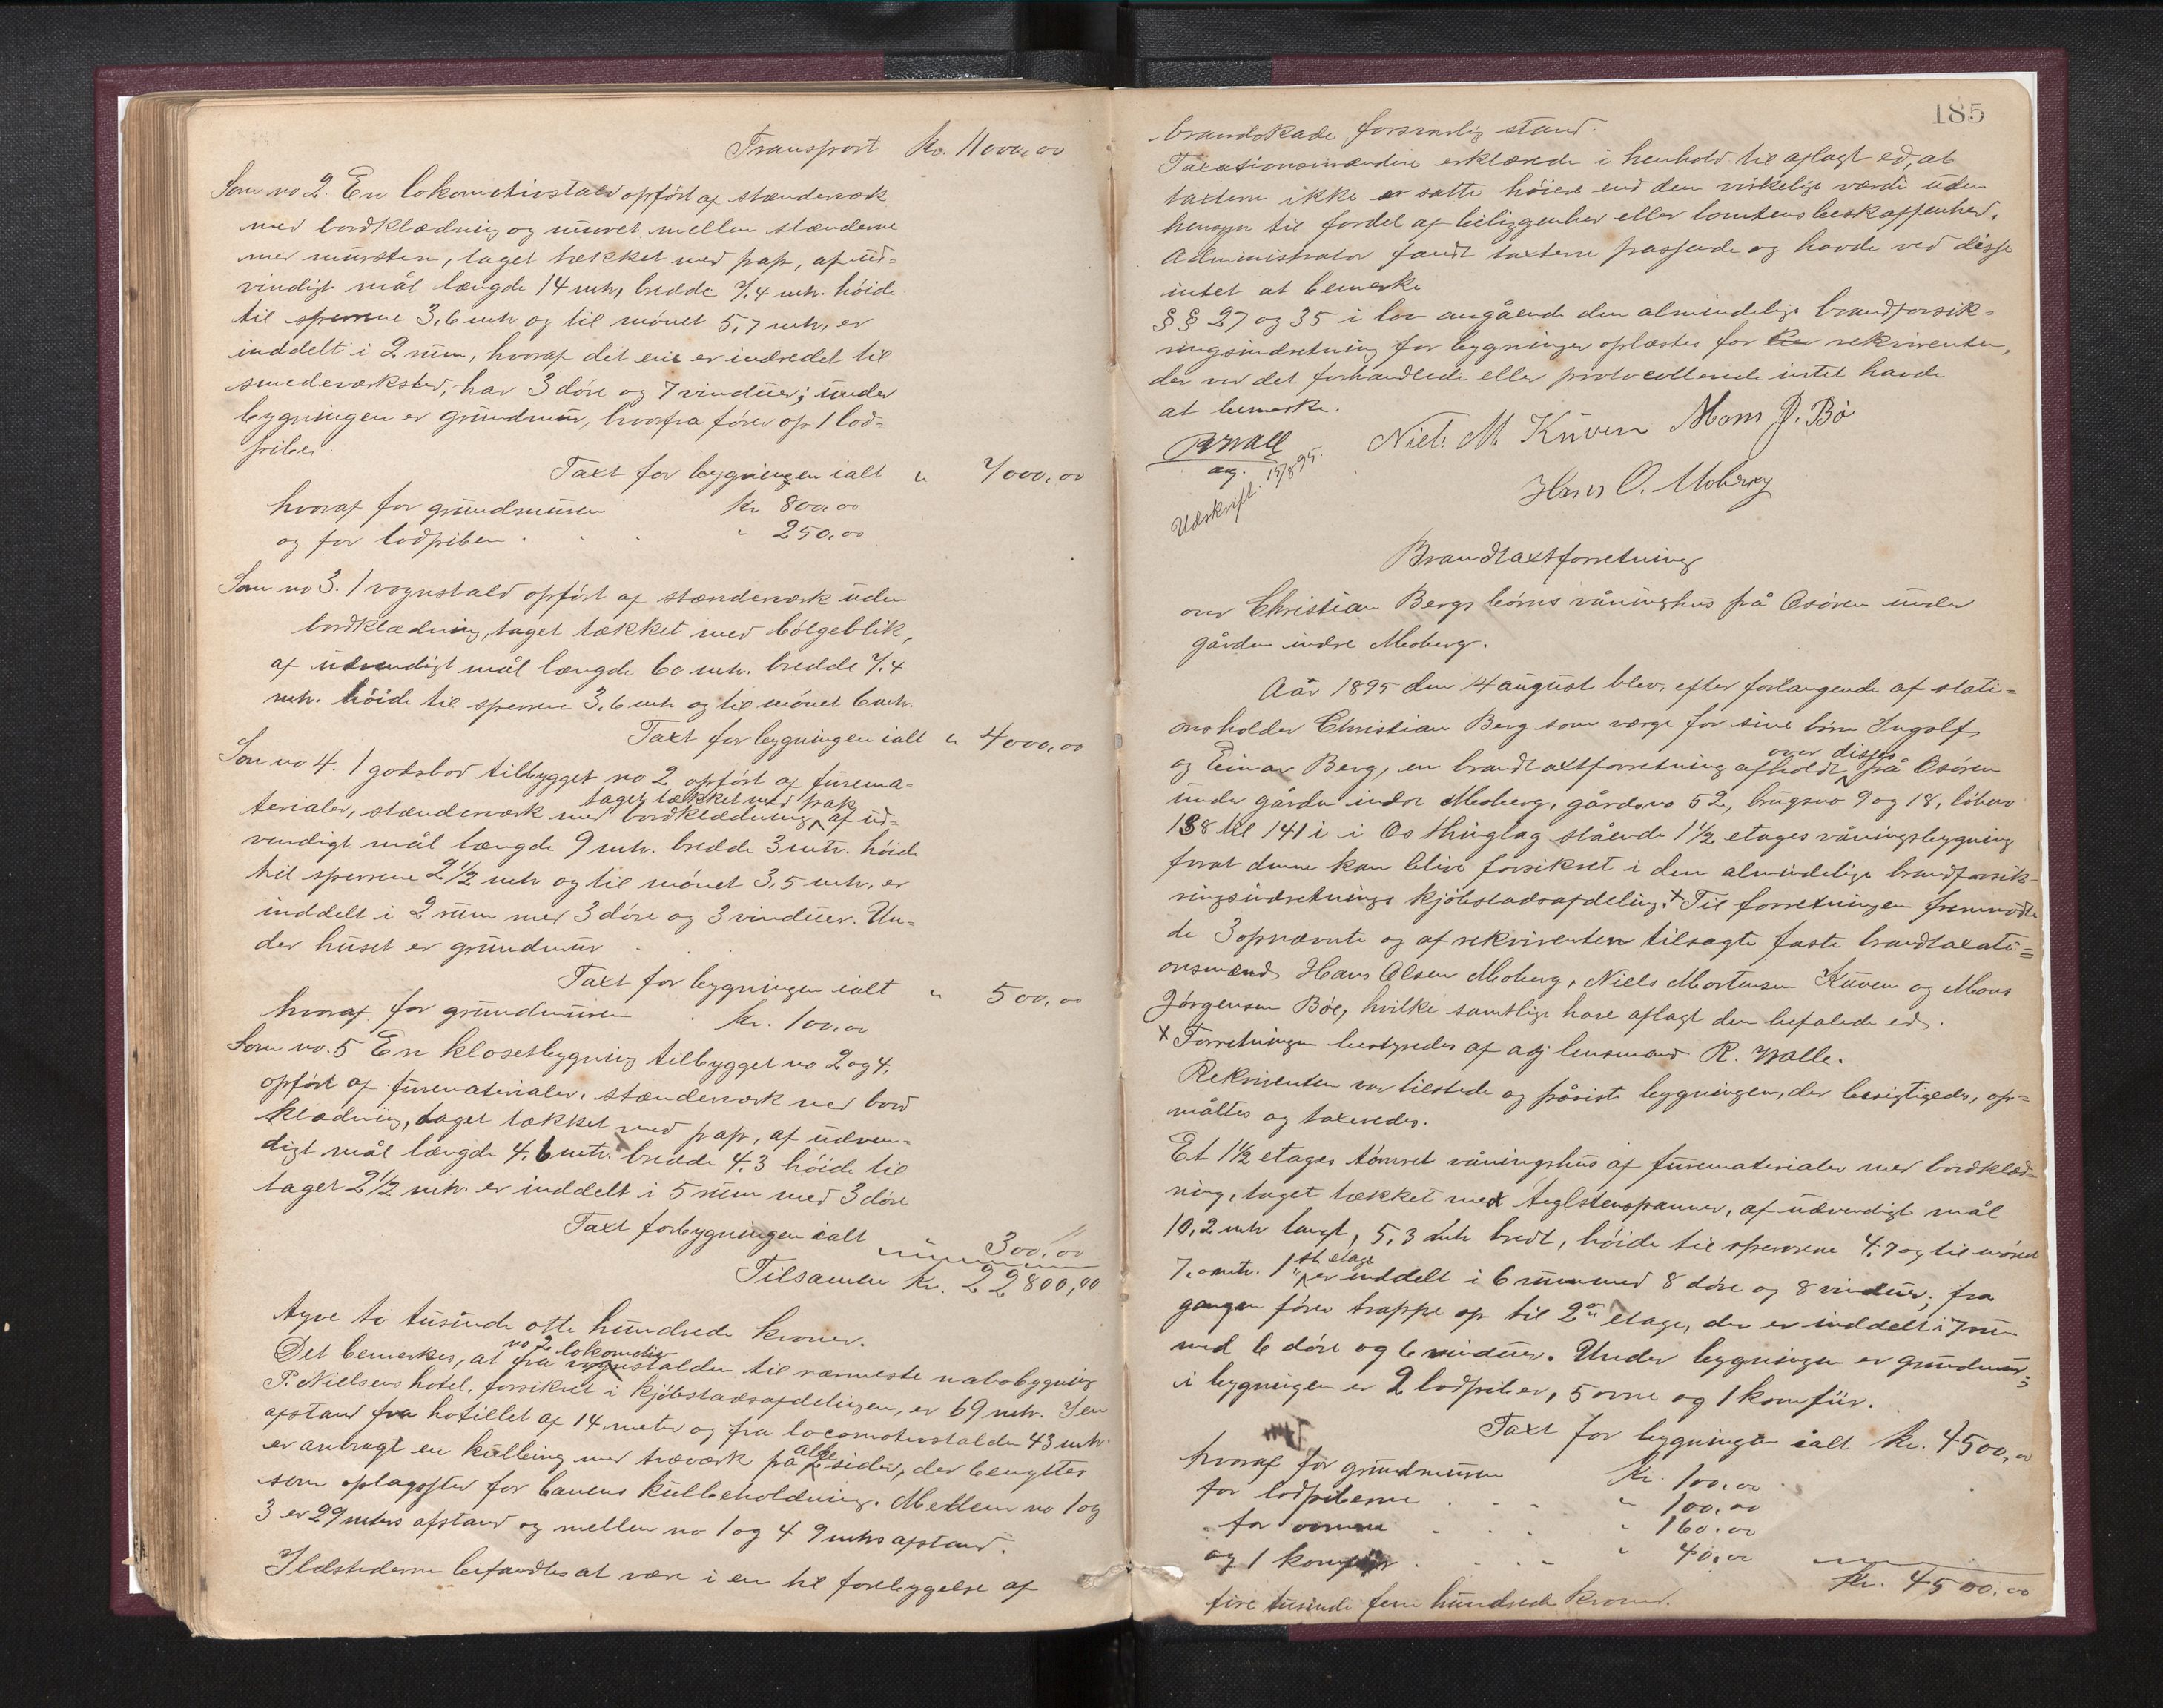 Transport Kr. 11000,00
Som no 2. En lokomotivstald opført af stænderværk
med bordklædning og muret mellem stænderne
med mursten, taget tækket med pap, af ud=
vindigt mål længde 14 mtr, bredde 7.4 mtr. høide
til sperrene 3,6 mtr og til mønet 5,7 mtr, er
inddelt i 2 rum, hvoraf det ene er indredet til
smedeværksted, har 3 døre og 7 vinduer; under
bygningen er grundmur, hvorfra fører op 1 lod=
pibe.
Taxt for bygningen ialt " 7000,00
hvoraf for grundmuren kr 800,00
og for lodpiben . . . " 250,00
Som no 3. 1 vognstald opført af stænderværk uden
bordklædning, taget tækket med bølgeblik,
af udvendigt mål længde 60 mtr. bredde 7.4
mtr. høide til sperrene 3,6 mtr og til mønet 6 mtr.
Taxt for bygningen ialt " 4000,00
Som no 4. 1 godsbod tilbygget no 2 opført af furema=
terialer, stænderværk med bordklædning, taget tækket med pap af ud=
vendigt mål længde 9 mtr. bredde 3 mtr. høide
til sperrene 2 1/2 mtr og til mønet 3,5 mtr. er
inddelt i 2 rum med 3 døre og 3 vinduer. Un=
der huset er grundmur
Taxt for bygningen ialt " 500,00
hvoraf for grundmuren . kr. 100,00
Som no. 5 En klosetbygning tilbygget no 2 og 4,
opført af furematerialer, stænderværk med bord
klædning, taget tækket med pap, af udven=
digt mål længde 4.6 mtr. bredde 4.3 høide til
taget 2 1/2 mtr. er inddelt i 5 rum med 3 døre
Taxt for bygningen ialt 300,00
Tilsamen Kr. 22800,00
tyve to tusinde otte hundrede kroner.
Det bemerkes, at fra no 2 lokomotivstalden til nærmeste nabobygning
P. Nielsens hotel, forsikret i kjøbstadsafdelingen, er 69 mtr. I en
afstand fra hotellet af 14 meter og fra locomotivstalden 43 mtr.
er anbragt en kulbing med træværk på alle sider, der benyttes
som oplagssted for banens kulbeholdning. Mellem no 1 og
3 er 29 mtrs afstand og mellem no 1 og 4 9 mtrs afstand.
Ildstederne befandtes at være i en til forebyggelse af
185
brandskade forsvarlig stand.
Taxationsmændene erklærede i henhold til aflagt ed, at
taxterne ikke er satte høiere end den virkelige værdi uden
hensyn til fordel af beliggenhed eller tomtens beskaffenhed.
Administrator fandt taxterne passende og havde ved disse
intet at bemerke
§§ 27 og 35 i lov angående den almindelige brandforsik=
ringsindretning for bygninger oplæstes for rekvirenten,
der ved det forhandlede eller protocollerede intet havde
at bemerke.
RWalle Niels M. Kuven Mons J. Bø
asj. Hans O. Moberg
Udskrift 15/8 95.
Brandtaxtforretning
over Christian Bergs børns våninghus på Osøren under
gården indre Moberg.
Aår 1895 den 14 august blev, efter forlangende af stati=
onsholder Christian Berg som værge for sine børn Ingolf
og Einar Berg, en brandtaxtforretning afholdt over disses på Osøren
under gården indre Moberg, gårdsno 52, brugsno 9 og 18, løbeno
138 til 141 i i Os thinglag stående 1 1/2 etages våningsbygning
forat denne kan blive forsikret i den almindelige brandforsik=
ringsindretnings kjøbstadsafdeling. x Til forretningen fremmødte
de 3 opnævnte og af rekvirenten tilsagte faste brandtaxati=
onsmænd Hans Olsen Moberg, Niels Mortensen Kuven og Mons
Jørgensen Bøe, hvilke samtlige have aflagt den befalede ed.
x Forretningen bestyredes af asj lensmand R. Walle.
Rekvirenten var tilstede og påviste bygningen, der besigtigedes, op=
måltes og taxeredes.
Et 1 1/2 etages tømret våningshus af furematerialer med bordklæd=
ning, taget tækket med teglstenspanner, af udvendigt mål
10,2 mtr langt, 5,3 mtr bredt, høide til sperrene 4.7 og til mønet
7.0 mtr. 1ste etage er inddelt i 6 rum med 8 døre og 8 vinduer; fra
gangen fører trappe op til 2den etage, der er inddelt i 7 rum
med 6 døre og 6 vinduer. Under bygningen er grundmur;
i bygningen er 2 lodpiber, 5 ovne og 1 komfür.
Taxt for bygningen ialt kr. 4500,00
hvoraf for grundmuren Kr. 100,00
for lodpiberne . . . " 100,00
for ovnene . . . " 160,00
og 1 komfür . . . " 40,00
Kr. 4500,00
fire tusinde fem hundrede kroner.